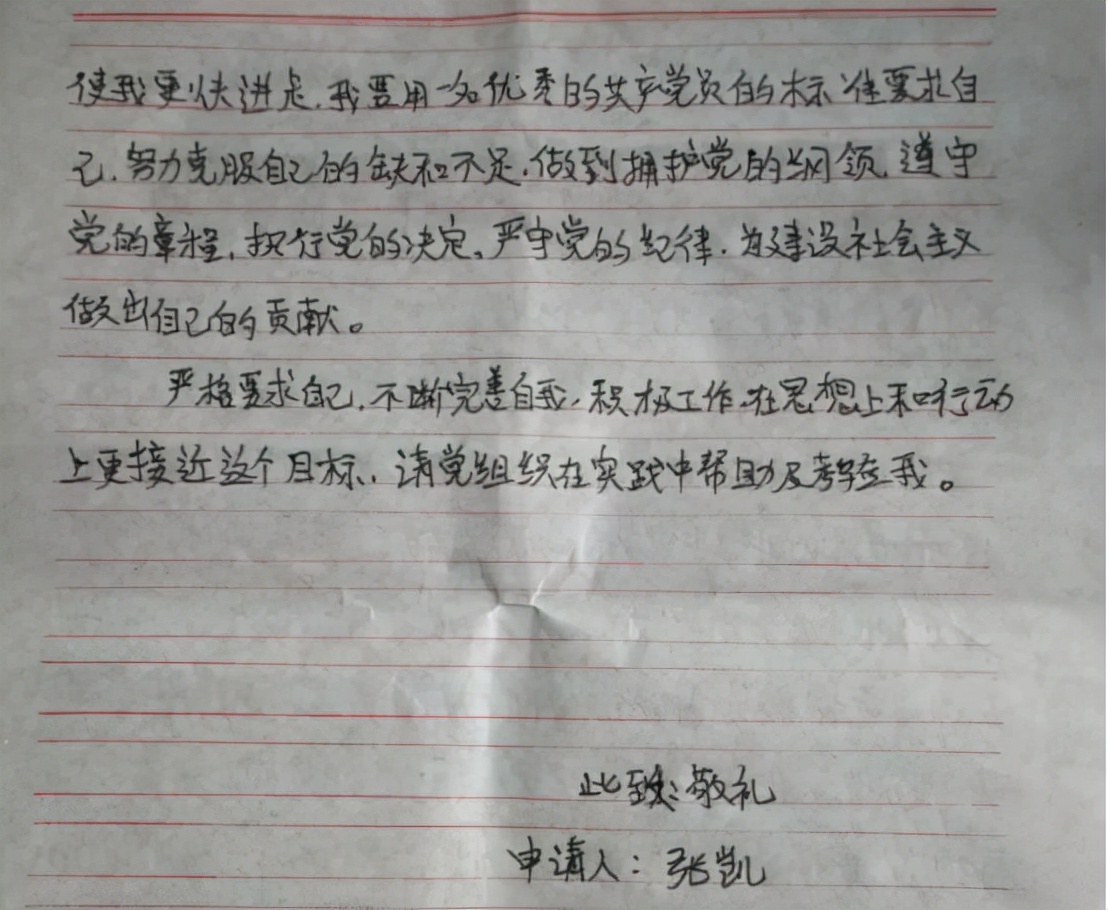 使我更快进步.我要用一名优秀的共产党员的标准要求自
己.努力克服自己的缺和不足.做到拥护党的纲领.遵守
党的章程.执行党的决定.严守党的纪律.为建设社会主义
做出自己的贡献。
严格要求自己.不断完善自我.积极工作.在思想上和行动
上更接近这个目标.请党组织在实践中帮助及考验我。
此致:敬礼
申请人:张凯